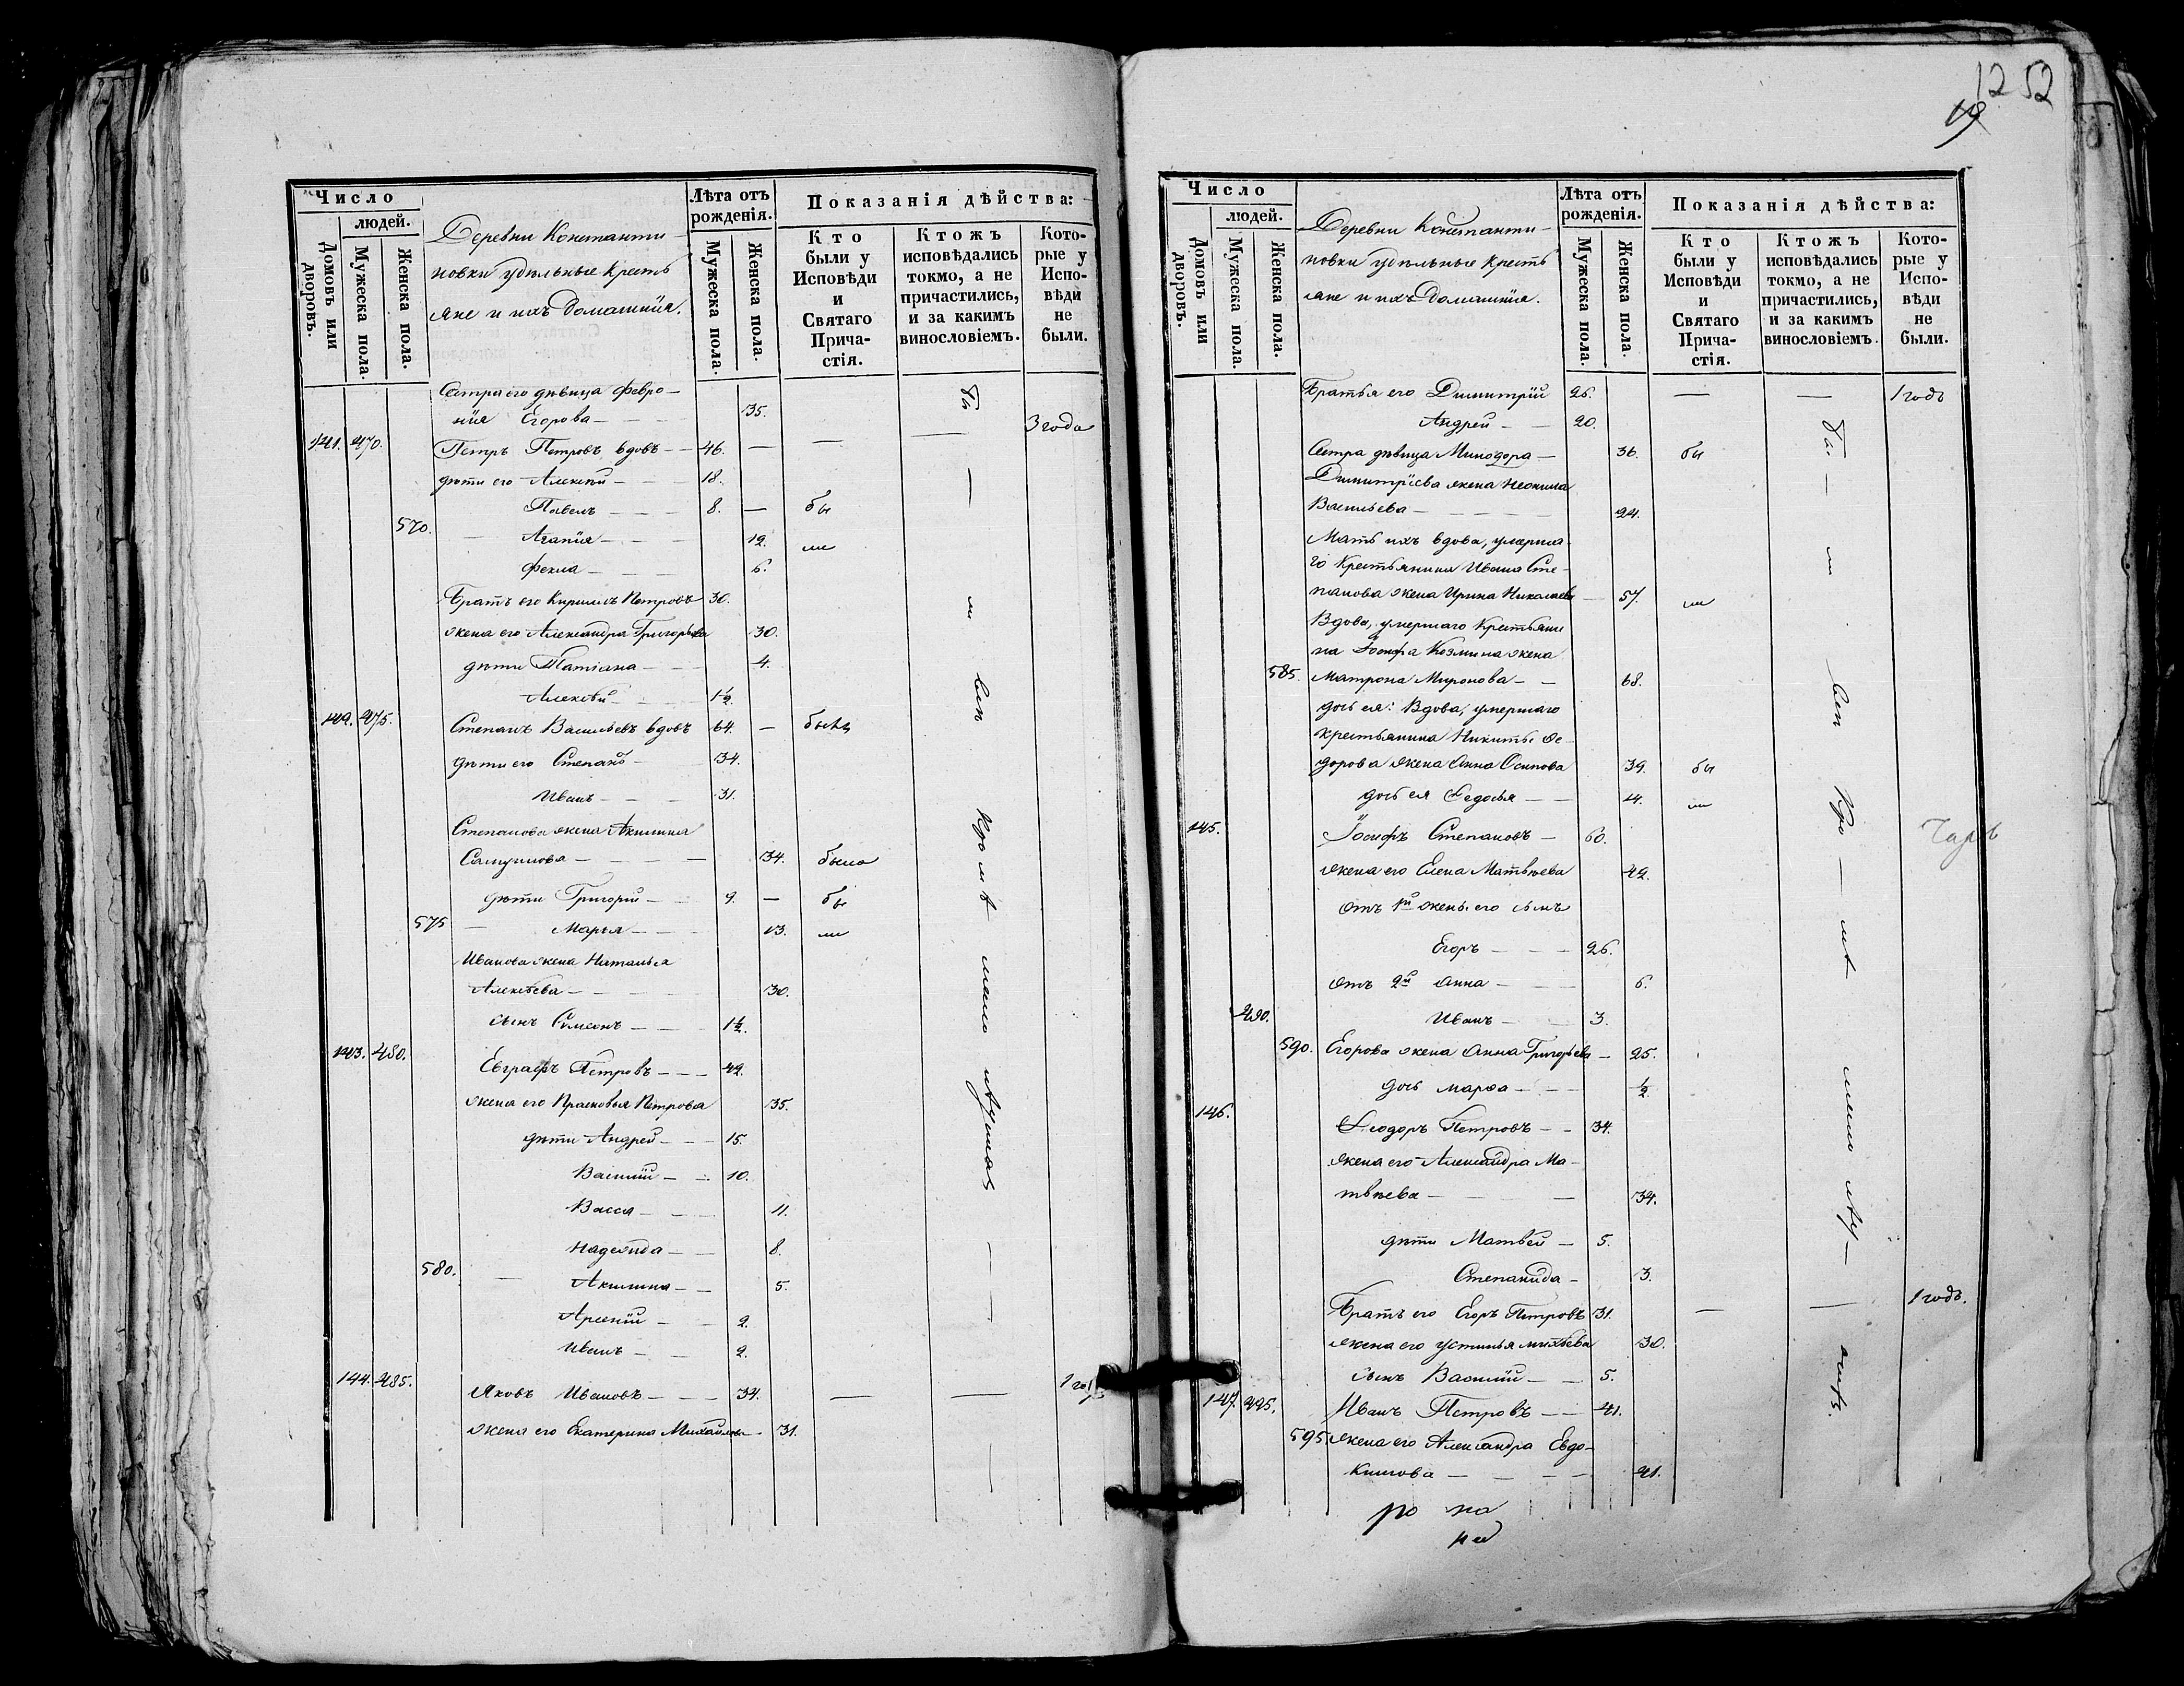 12 52
19
Число
людей.
Домовъ или дворовъ.
Мужеска пола.
Женска пола.
Деревни Константи-
новки удѣльные крестъ
яне и ихъ домашнiя.
Лѣта отъ рожденiя.
Мужеска пола.
Женска пола.
Показанiя дѣйства:
Кто были у Исповѣди и Святаго Прича-стiя.
Ктожъ исповѣдались токмо, а не причастились, и за какимъ винословiемъ.
Кото-рые у Испо-вѣди не были.
Сестра его дѣвица Февро-
нiя Егорова 35.
141. 470. Петръ Петровъ вдовъ 46. 3 года
дѣти его Алексѣй 18.
Павелъ 8. бы
570. Агапiя 12. ли
Фекла 6.
Братъ его Кириллъ Петровъ 30.
жена его Александра Григорьева 30.
дѣти Татiана 4.
Алексѣй 1½
142. 475. Степанъ Васильевъ вдовъ 64. былъ
дѣти его Степанъ 34.
Иванъ 31.
Степанова жена Акилина
Самуилова 34. была
дѣти Григорiй 9. бы
575 Марья 13. ли
Иванова жена Наталья
Алексѣева 30.
сынъ Симеонъ 1½.
143. 480. Евграфъ Петровъ 42.
жена его Прасковья Петрова 35.
дѣти Андрей 15.
Василiй 10.
Васса 11.
Надежда 8.
580. Акилина 5.
Арсенiй 2.
Иванъ 2.
144. 485. Яковъ Ивановъ 34. 1 годъ
жена его Екатерина Михайлова 31.
бы
ли
Число
людей.
Домовъ или дворовъ.
Мужеска пола.
Женска пола.
Деревни Константи-
новки удѣльные крестъ
яне и ихъ домашнiя.
Лѣта отъ рожденiя.
Мужеска пола.
Женска пола.
Показанiя дѣйства:
Кто были у Исповѣди и Святаго Прича-стiя.
Ктожъ исповѣдались токмо, а не причастились, и за какимъ винословiемъ.
Кото-рые у Испо-вѣди не были.
Братья его Димитрiй 26. 1 годъ
Андрей 20.
Сестра дѣвица Минодора 36. бы
Димитрiева жена Неонила
Васильева 24.
Мать ихъ вдова, умерша-
го крестьянина Ивана Сте-
панова жена Ирина Николаева 57. ли
Вдова, умершаго крестьяни
на Iосифа Козмина жена
585. Матрона Миронова 68.
дочь ея: Вдова, умершаго
крестьянина Никиты Ѳе-
дорова жена Анна Осипова 39. бы
дочь ея Ѳедосья 14. ли
145. Iосифъ Степановъ 60.
жена его Елена Матвѣева 42.
отъ 1й жены его сынъ
Егоръ 26.
отъ 2й Анна 6.
490. Иванъ 3.
590. Егорова жена Анна Григорьева 25.
дочь Марѳа ½
146. Ѳеодоръ Петровъ 34.
жена его Александра Ма-
твѣева 34.
дѣти Матвѣй 5.
Степанида 3.
Братъ его Егоръ Петровъ 31. 1 годъ.
жена его Устинья Михѣева 30.
сынъ Василiй 5.
147. 495. Иванъ Петровъ 41.
595. жена его Александра Евдо-
кимова 41.
бы
ли